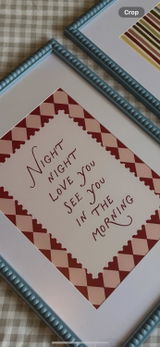 Crop
NIGHT
NIGHT
LOVE YOU
SEE YOU
IN THE
MORNING